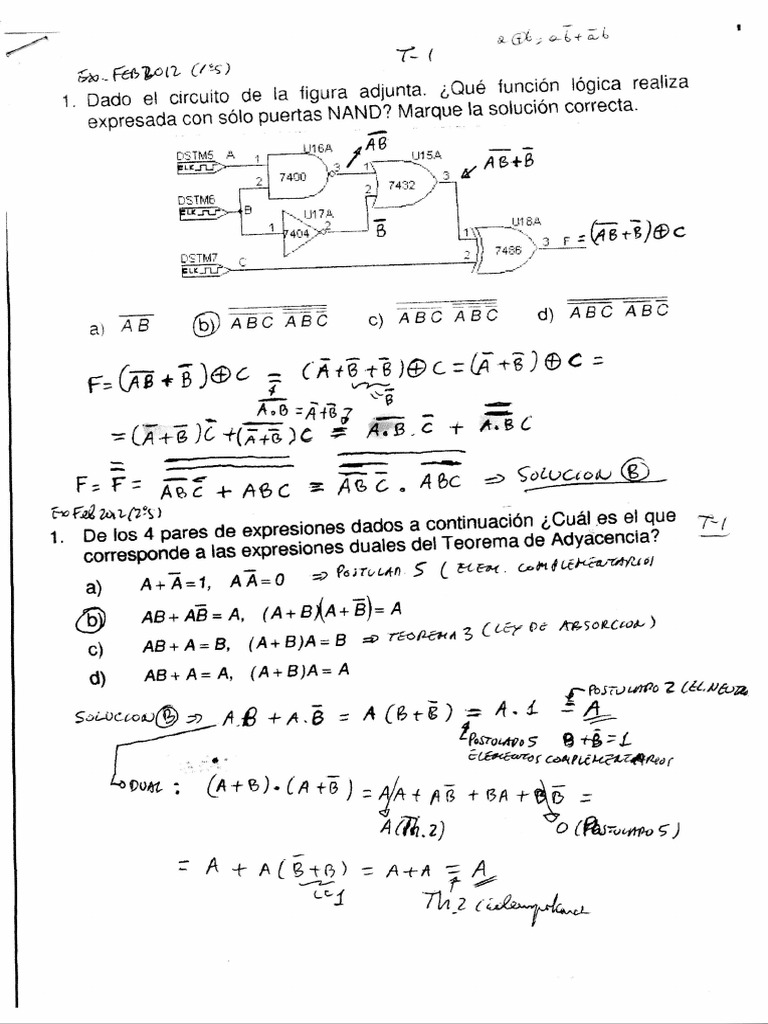 a⊕b = ab̅ + a̅b
T-1
Exo. FEB 2012 (1ºS)
1. Dado el circuito de la figura adjunta. ¿Qué función lógica realiza
expresada con sólo puertas NAND? Marque la solución correcta.
DSTM5 A 1 U16A 3 7400 2
CLK
A̅B̅ 1 U15A 3 7432 2
A̅B̅ + B̅
DSTM6
CLK B
1 U17A 2 7404
B̅
U18A 1 7486 2 3 F = (A̅B̅ + B̅) ⊕ C
DSTM7 C
CLK
a) A B b) A B C A B C c) A B C A B C d) A B C A B C
F = (A̅B̅ + B̅) ⊕ C = (A̅ + B̅ + B̅) ⊕ C = (A̅ + B̅) ⊕ C =
B̅
A.B = A̅ + B̅
= (A̅ + B̅) C̅ + (A̅ + B̅) C = A.B . C̅ + A.B C
F = F = A B C̅ + A B C = A B C̅ . A B C ⇒ SOLUCION B
Exo Feb 2012 (2ºS)
1. De los 4 pares de expresiones dados a continuación ¿Cuál es el que T-1
corresponde a las expresiones duales del Teorema de Adyacencia?
a) A + A̅ = 1, A A̅ = 0 ⇒ POSTULAD. 5 ( ELEM. COMPLEMENTARIOS
b) AB + AB̅ = A, (A + B)(A + B̅) = A
c) AB + A = B, (A + B)A = B ⇒ TEOREMA 3 (LEY DE ABSORCION)
d) AB + A = A, (A + B)A = A
POSTULADO 2 (EL. NEUTRO
SOLUCION B ⇒ A.B + A.B̅ = A (B + B̅) = A . 1 = A
POSTULADO 5 B + B̅ = 1
ELEMENTOS COMPLEMENTARIOS
DUAL : (A + B) . (A + B̅) = A A + A B̅ + B A + B B̅ =
A (Th. 2) 0 (POSTULADO 5)
= A + A ( B̅ + B ) = A + A = A
= 1 Th. 2